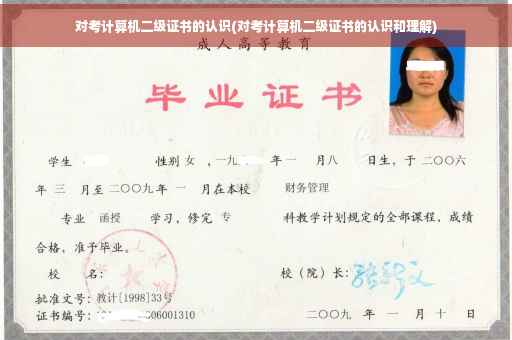 对考计算机二级证书的认识(对考计算机二级证书的认识和理解)
成人高等教育
毕业证书
学生 性别 女 ,一九 年 一 月八 日生，于 二〇〇六
年 三 月至 二〇〇九 年 一 月在本校 财务管理
专业 函授 学习，修完 专 科教学计划规定的全部课程，成绩
合格，准予毕业。
校 名： 校（院）长：
批准文号：教计[1998]33号
证书编号： 06001310 二〇〇九 年 一 月 十 日